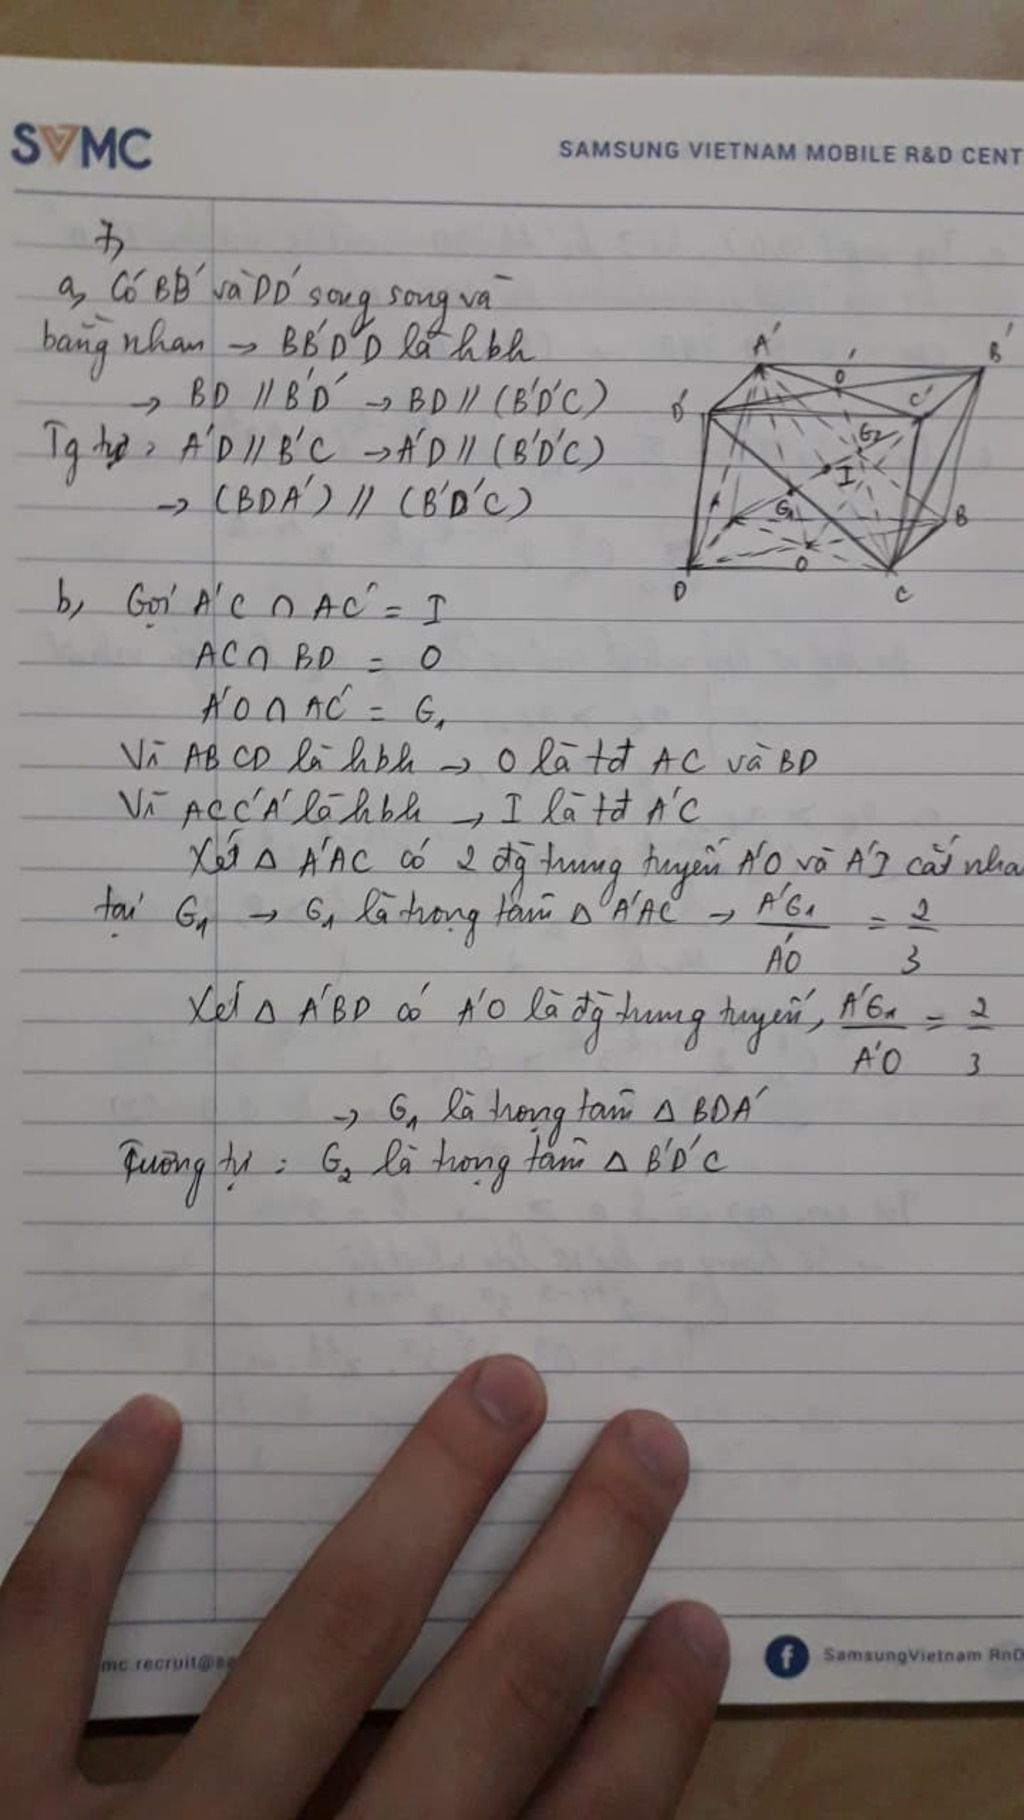 SVMC
SAMSUNG VIETNAM MOBILE R&D CENT
7,
a, Có BB' và DD' song song và
bằng nhau → BB'D'D là hbh
→ BD // B'D' → BD // (B'D'C)
Tg tự, A'D // B'C → A'D // (B'D'C)
→ (BDA') // (B'D'C)
A' O' B'
D' C'
G2
I
G1
B
O
D C
b, Gọi A'C ∩ AC' = I
AC ∩ BD = O
A'O ∩ AC' = G1
Vì ABCD là hbh → O là tđ AC và BD
Vì ACC'A' là hbh → I là tđ A'C
Xét Δ A'AC có 2 đg trung tuyến A'O và A'I cắt nha
tại G1 → G1 là trọng tâm Δ A'AC → A'G1/A'O = 2/3
Xét Δ A'BD có A'O là đg trung tuyến, A'G1/A'O = 2/3
→ G1 là trọng tâm Δ BDA'
Tương tự : G2 là trọng tâm Δ B'D'C
mc.recruit@s
f SamsungVietnam RnD